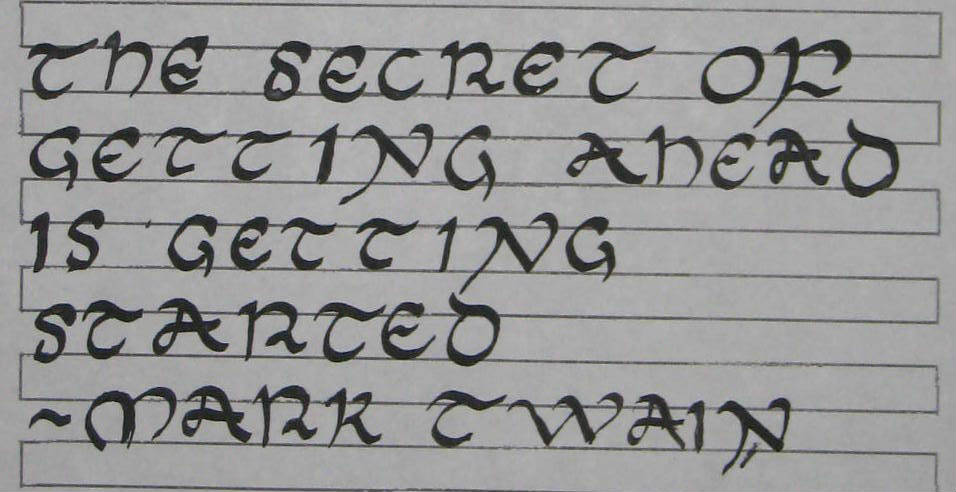 THE SECRET OF
GETTING AHEAD
IS GETTING
STARTED
~MARK TWAIN